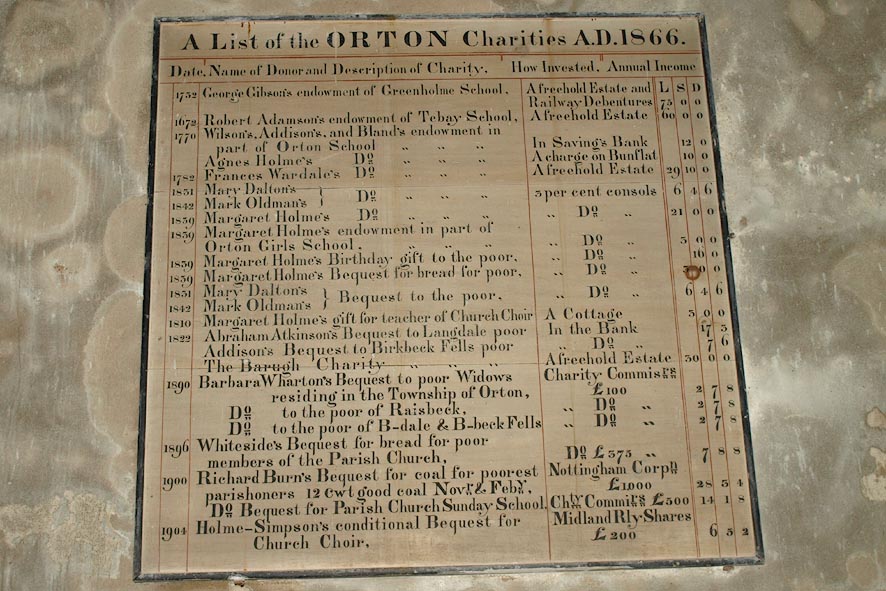 A List of the ORTON Charities A.D. 1866.
Date. Name of Donor and Description of Charity. How Invested. Annual Income
1732 George Gibson's endowment of Greenholme School, A freehold Estate and L S D
Railway Debentures 75 0 0
1672 Robert Adamson's endowment of Tebay School, A freehold Estate 60 0 0
1770 Wilson's, Addison's, and Bland's endowment in
part of Orton School „ „ „ In Saving's Bank 12 0
Agnes Holme's Do „ „ „ A charge on Bunflat 10 0
1782 Frances Wardale's Do „ „ „ A freehold Estate 29 10 0
1831 Mary Dalton's
1842 Mark Oldman's } Do „ „ „ 3 per cent consols 6 4 6
1859 Margaret Holme's Do „ „ „ „ Do „ 21 0 0
1859 Margaret Holme's endowment in part of
Orton Girls School, „ „ „ „ Do „ 3 0 0
1859 Margaret Holme's Birthday gift to the poor, „ Do „ 16 0
1859 Margaret Holme's Bequest for bread for poor, „ Do „ 0 0
1831 Mary Dalton's
1842 Mark Oldman's } Bequest to the poor, „ Do „ 6 4 6
1810 Margaret Holme's gift for teacher of Church Choir A Cottage 3 0 0
1822 Abraham Atkinson's Bequest to Langdale poor In the Bank 17 3
Addison's Bequest to Birkbeck Fells poor „ Do „ 7 6
The Barugh Charity „ „ „ A freehold Estate 30 0 0
1890 Barbara Wharton's Bequest to poor Widows Charity Commisrs
residing in the Township of Orton, £100 2 7 8
Do to the poor of Raisbeck, „ Do „ 2 7 8
Do to the poor of B-dale & B-beck Fells „ Do „ 2 7 8
1896 Whiteside's Bequest for bread for poor
members of the Parish Church, Do £375 „ 7 8 8
1900 Richard Burn's Bequest for coal for poorest Nottingham Corpn
parishoners 12 cwt good coal Novr. & Feby. £1000 28 3 4
Do Bequest for Parish Church Sunday School. Chty Commisrs £500 14 1 8
1904 Holme-Simpson's conditional Bequest for Midland Rly. Shares
Church Choir, £200 6 5 2